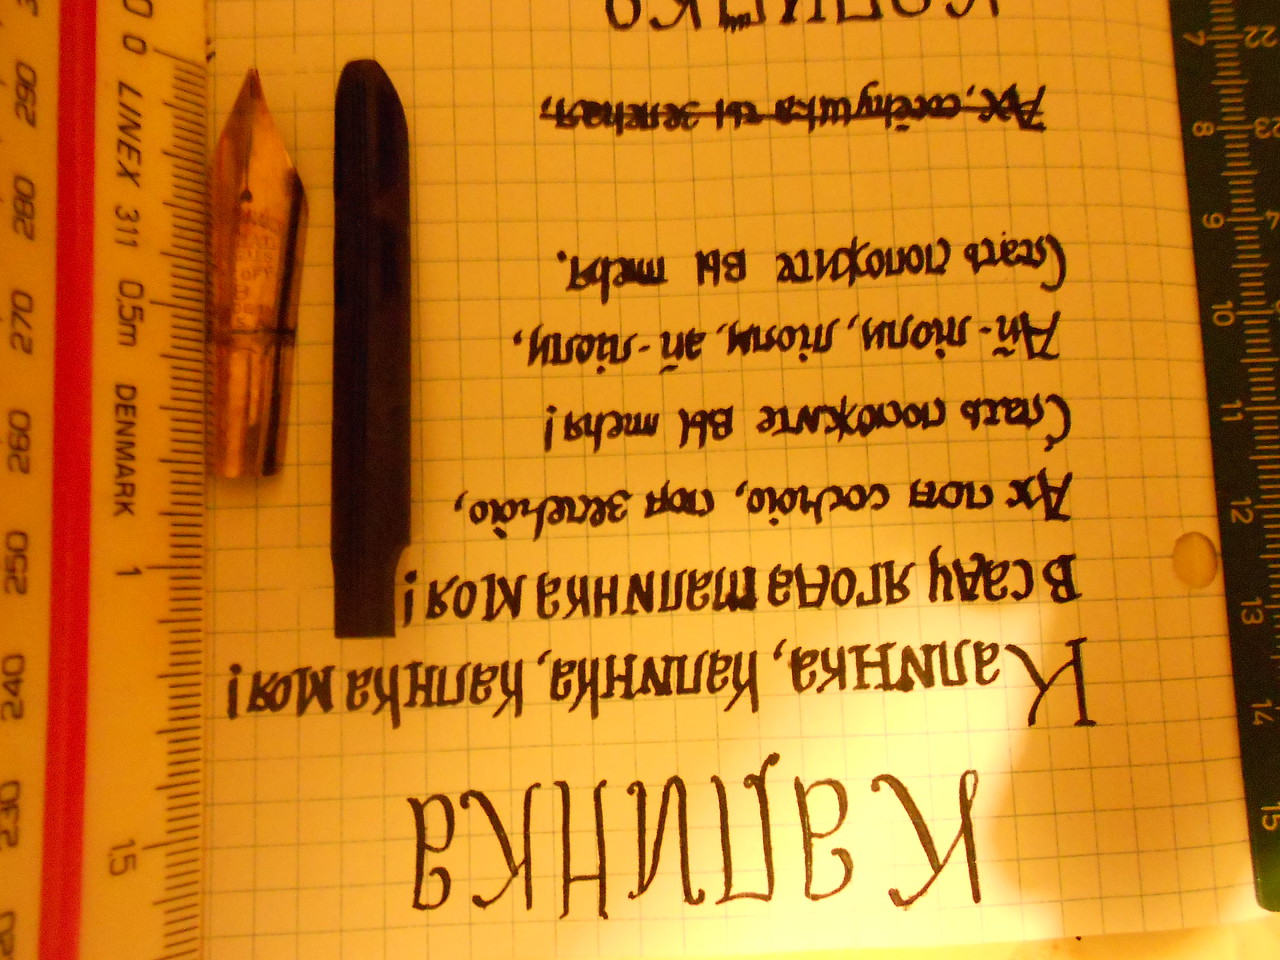 Калинка
Калинка, калинка, калнка моя!
В саду ягода малинка моя!
Ах под сосною, под зеленою,
Спать положите вы меня!
Ай-люли, люли, ай-люли,
Спать положите вы меня.
Ах, сосёнушка ты зеленая,
Калинка
LINEX 311 0.5m DENMARK
1
1.5
290
280
270
260
250
240
230
7
8
9
10
11
12
13
14
15
22